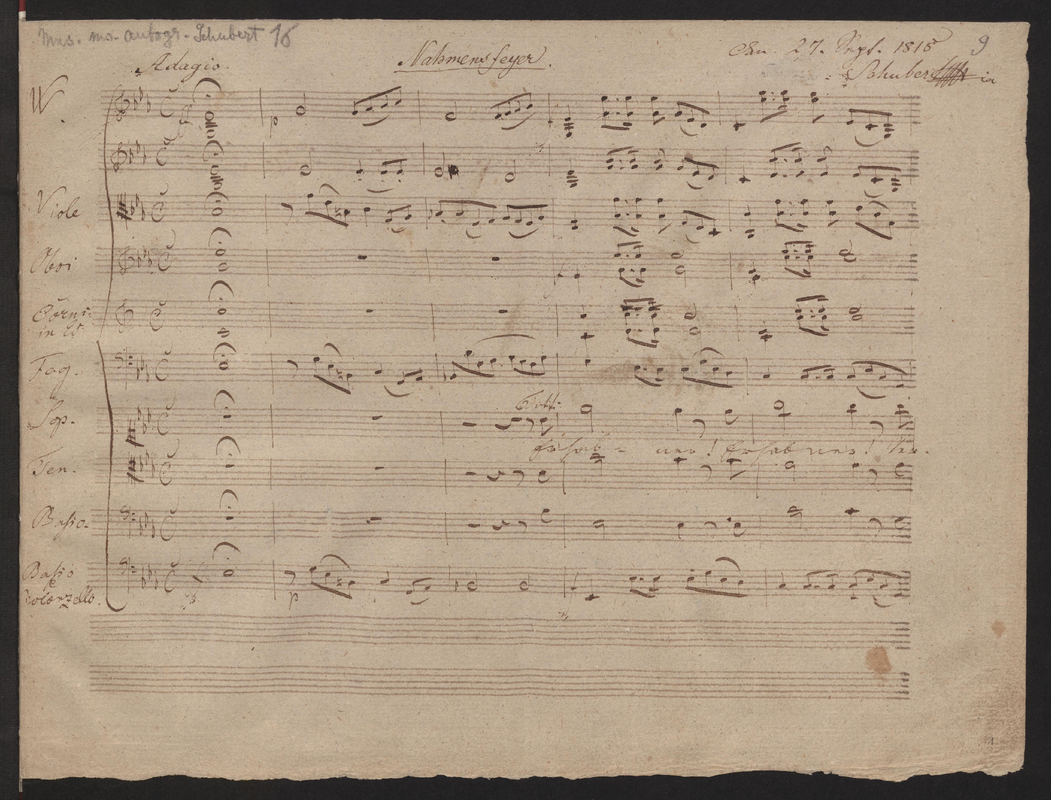 Mus. ms. autogr. Schubert 16
Nahmensfeyer.
Den 27. Sept. 1815
9
Adagio.
Schubert
Viole
Oboi
Corni
in Es
Fag.
Sop.
Tutti
Erhab - ner! Erhabner! Ver-
Ten.
Basso
Basso
e
Violonzello